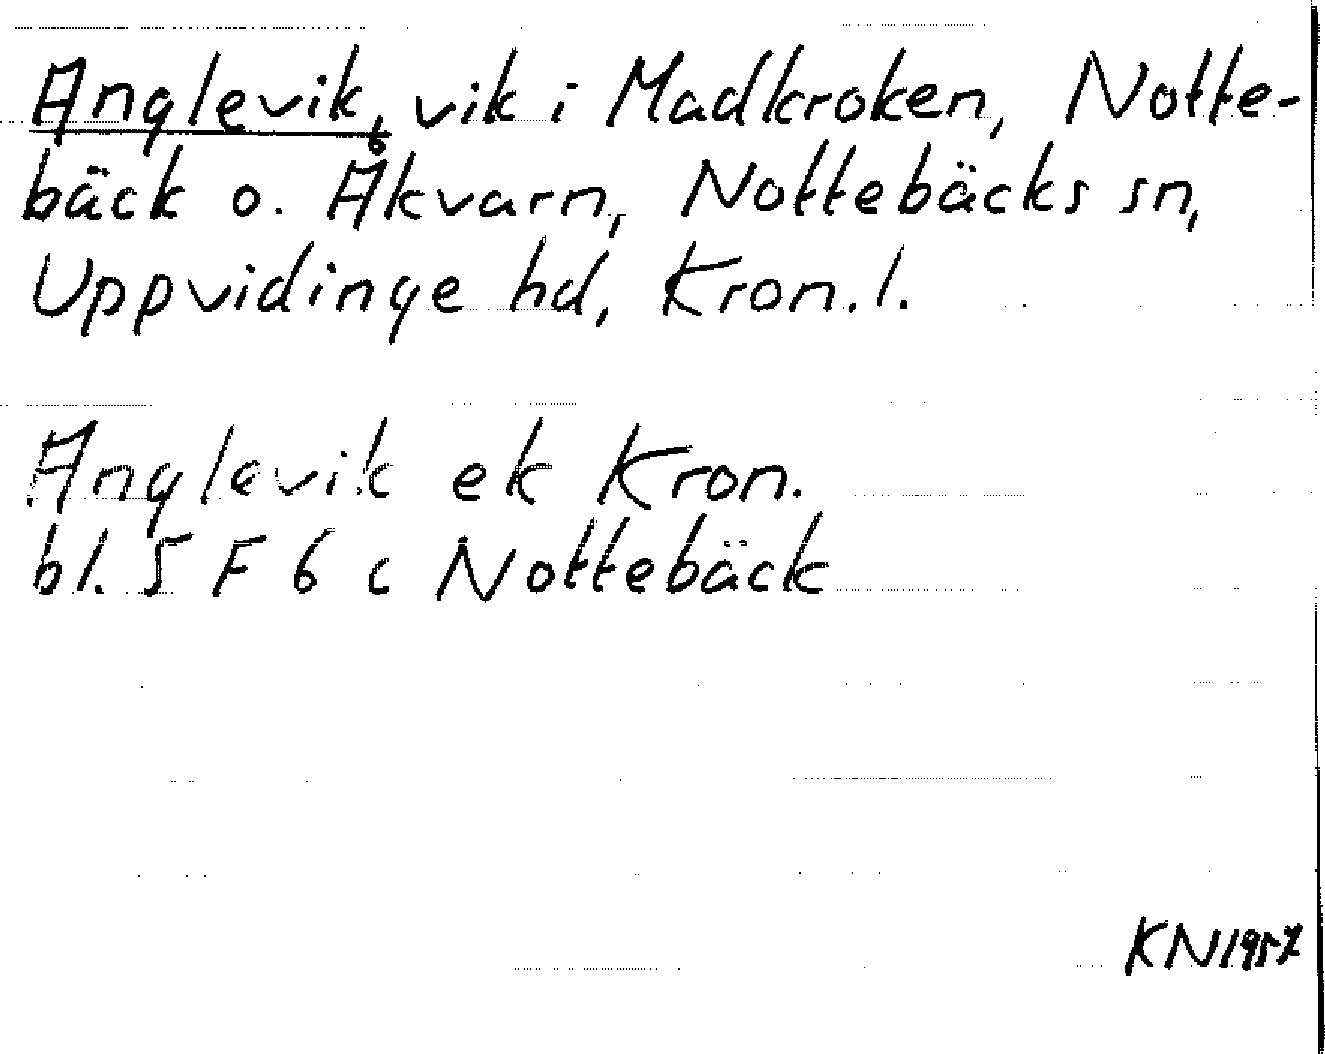 Anglevik, vik i Madkroken, Notte-
bäck o. Åkvarn, Nottebäcks sn,
Uppvidinge hd, Kron. l.
Anglavik ek Kron.
bl. 5 F 6 c Nottebäck
KN 1957